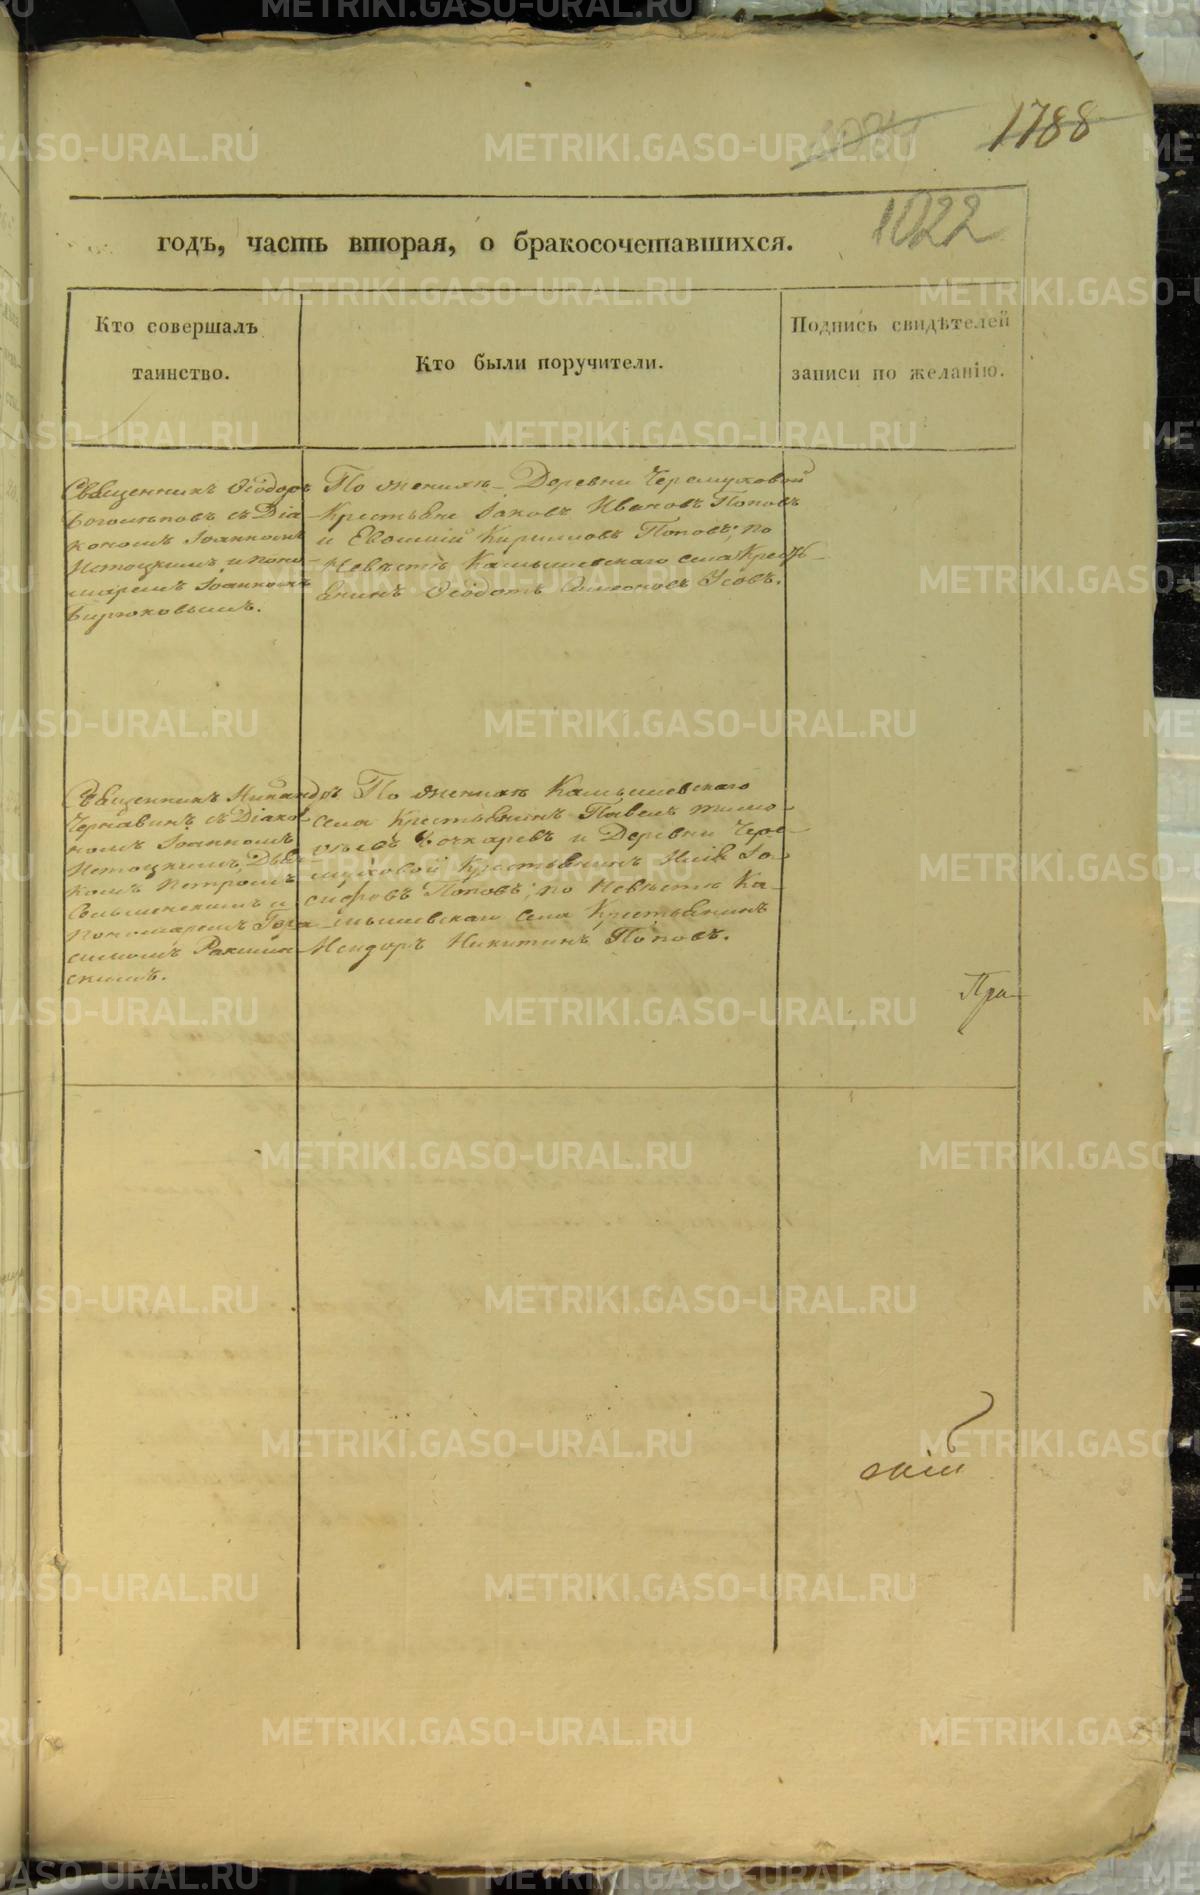 1788
1022
годъ, часть вторая, о бракосочетавшихся.
Кто совершалъ
таинство.
Кто были поручители.
Подпись свидѣтелей
записи по желанію.
Священникъ Ѳеодоръ
Боголѣповъ съ Діа
кономъ Іоанномъ
Истоцкимъ и поно
маремъ Іоанномъ
Бирюковымъ.
По женихѣ Деревни Черемуховой
Крестьяне Іаковъ Ивановъ Поповъ
и Евѳимій Кириловъ Поповъ; по
Невѣстѣ Камышевскаго села Кресть
янинъ Ѳеодотъ Симеоновъ Усовъ.
Священникъ Никандръ
Чернавинъ съ Діако
номъ Іоанномъ
Истоцкимъ, Дьяч
комъ Петромъ
и
Пономаремъ Гера
симомъ
скимъ.
По женихѣ Камышевскаго
села Крестьянинъ Павелъ Тимо
ѳѣевъ Бочкаревъ и Деревни Чере
муховой Крестьянинъ Іо
сифовъ Поповъ; по Невѣстѣ Ка
мышевскаго села Крестьянинъ
Исидоръ Никитинъ Поповъ.
Пра
скій
METRIKI.GASO-URAL.RU